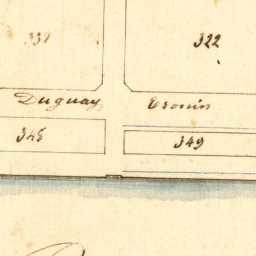 338 322
Duguay Cronin
348 349